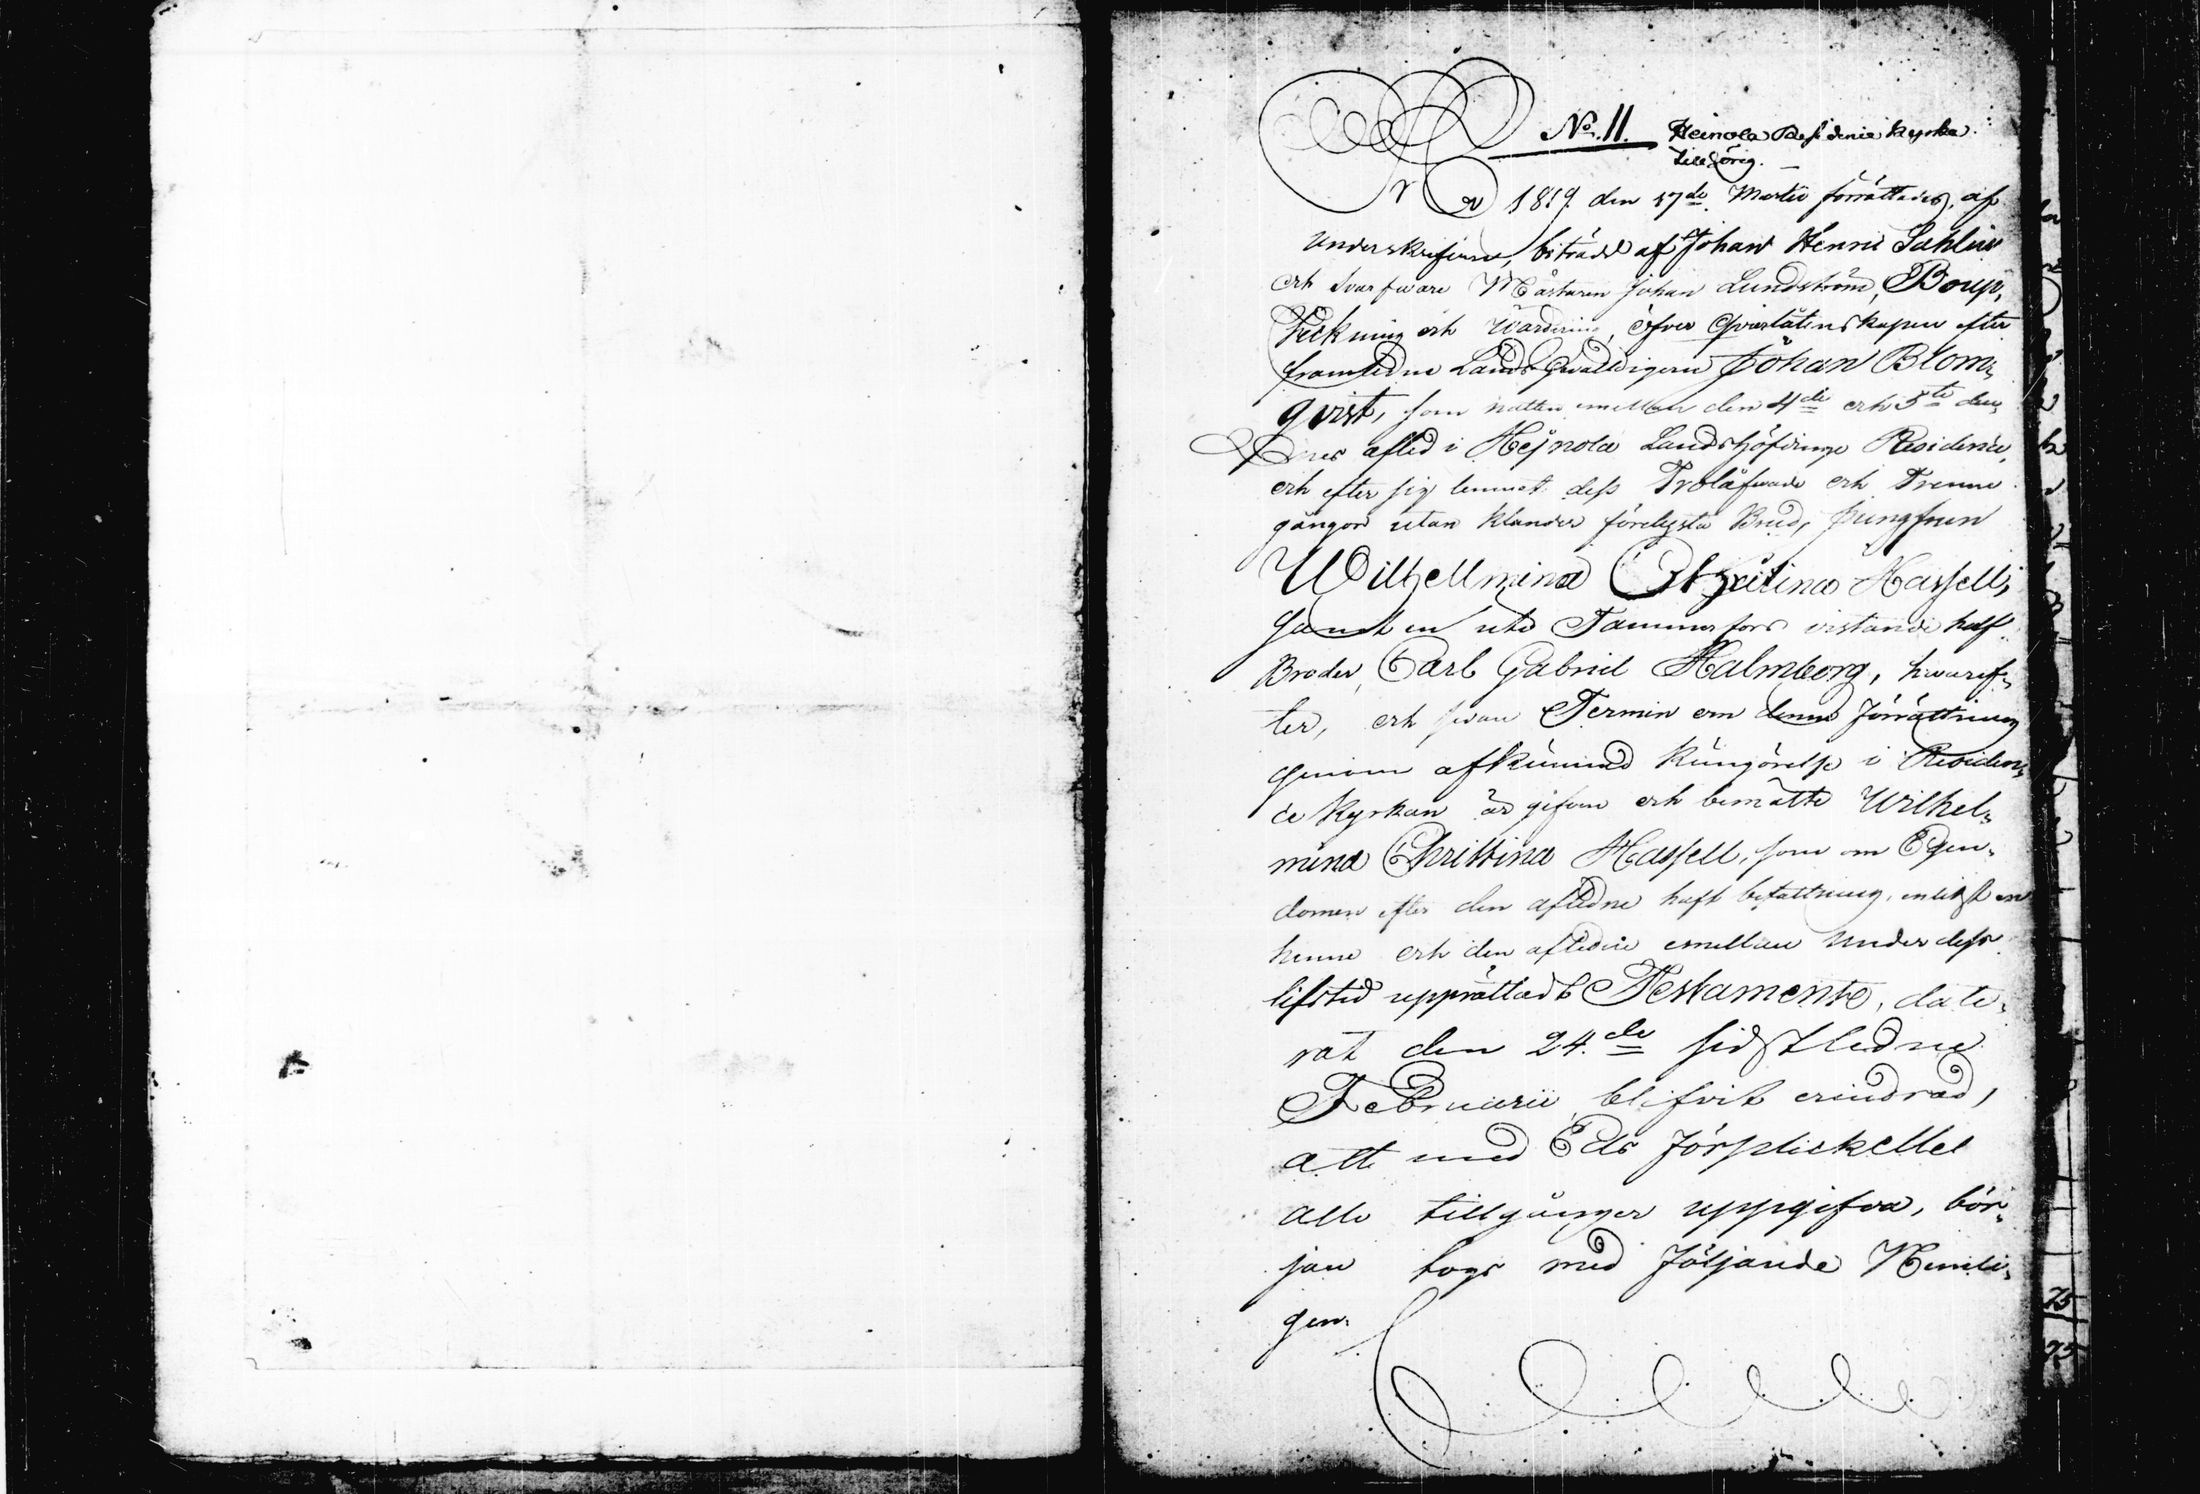 No. 11. Heinola Residence kyrka
tillhörig.
År 1819 den 17de Martii förrättades, af
Underskrifven, biträdd af Johan Henric Sahlin
och Svarfware Mästaren Johan Lundström, Boup,
teckning och Wärdering, öfver Qvarlåtenskapen efter
framledne Lands Gevaldigern Johan Blom,
qvist, som natten emellan den 4de och 5te den,
nes afled i Hejnola Landshöfdinge Residence,
och efter sig lemnat dess Trolåfwade och Trenne
gångor utan klander förelysta Brud, Jungfrun
Wilhellmina Christina Hassell,
samt en uti Tammerfors vistande half
Broder, Carl Gabriel Malmborg, hwaref,
ter, och sedan Termin om denna förrättning
genom afkunnad kungörelse i Residen,
ce Kyrkan är gifven och bemälte Wilhel,
mina Christina Hassell, som om Egen,
domen efter den aflidne haft befattning, enligt en
henne och den aflidne emellan under dess
lifstid upprättadt Testamente, date,
rat den 24.de sidstledne
Februarii blifvit erindrad,
att med Eds förplicktellse
alla tillgångar uppgifva, bör,
jan togs med följande Nemli,
gen.
75
95